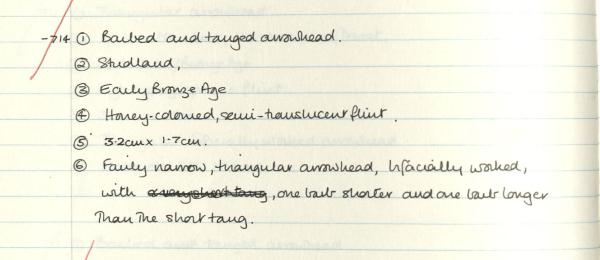 -714 ① Barbed and tanged arrowhead.
② Studland,
③ Early Bronze Age
④ Honey-coloured, semi-translucent flint.
⑤ 3.2cm x 1.7cm.
⑥ Fairly narrow, triangular arrowhead, bifacially worked,
with a very short tang, one barb shorter and one barb longer
than the short tang.